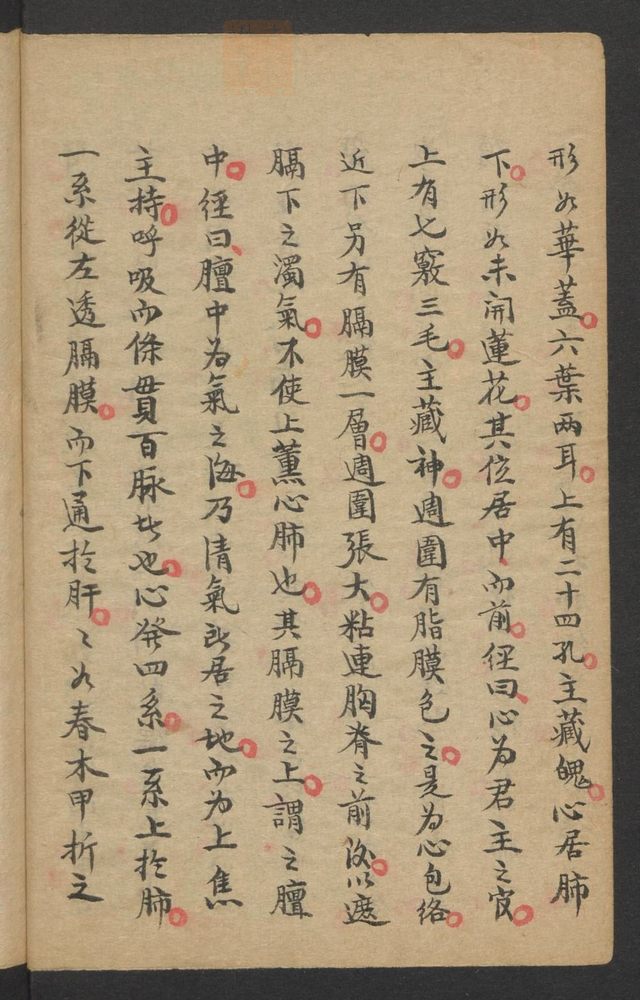 形如華蓋六葉兩耳上有二十四孔主藏魄心居肺
下形如未開蓮花其位居中而前徑曰心為君主之官
上有七竅三毛主藏神週圍有脂膜色之是為心包絡
近下另有膈膜一層週圍張大粘連胸脊之前後以遮
膈下之濁氣不使上薰心肺也其膈膜之上謂之膻
中徑曰膻中為氣之海乃清氣所居之地而為上焦
主持呼吸而條貫百脉者也心發四系一系上於肺
一系從左透膈膜而下通於肝〻如春木甲折之